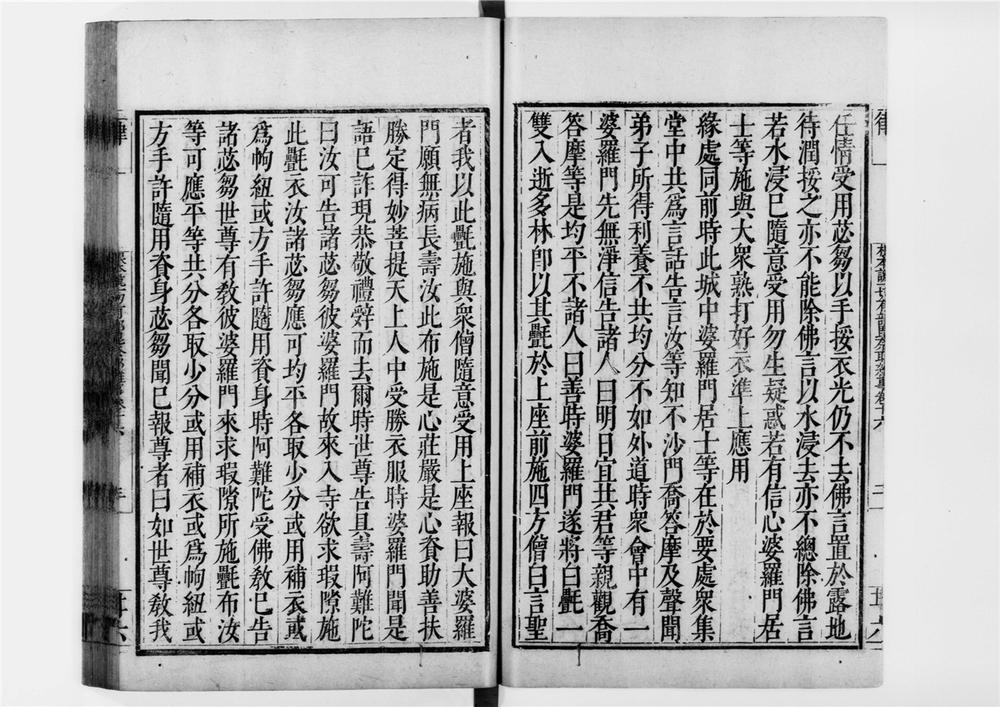 任情受用苾芻以手挼衣光仍不去佛言置於露地
待潤挼之亦不能除佛言以水浸去亦不總除佛言
若水浸已隨意受用勿生疑惑若有信心婆羅門居
士等施與大衆熟打好衣準上應用
緣處同前時此城中婆羅門居士等在於要處衆集
堂中共爲言話告言汝等知不沙門喬答摩及聲聞
弟子所得利養不共均分不如外道時衆會中有一
婆羅門先無淨信告諸人曰明日宜共君等親觀喬
答摩等是均平不諸人曰善時婆羅門遂將白㲲一
雙入逝多林卽以其㲲於上座前施四方僧白言聖
者我以此㲲施與衆僧隨意受用上座報曰大婆羅
門願無病長壽汝此布施是心莊嚴是心資助善扶
勝定得妙菩提天上人中受勝衣服時婆羅門聞是
語已詐現恭敬禮辭而去爾時世尊告具壽阿難陀
曰汝可告諸苾芻彼婆羅門故來入寺欲求瑕隙施
此㲲衣汝諸苾芻應可均平各取少分或用補衣或
爲帉紐或方手許隨用資身時阿難陀受佛敎已告
諸苾芻世尊有敎彼婆羅門來求瑕隙所施㲲布汝
等可應平等共分各取少分或用補衣或爲帉紐或
方手許隨用資身苾芻聞已報尊者曰如世尊敎我